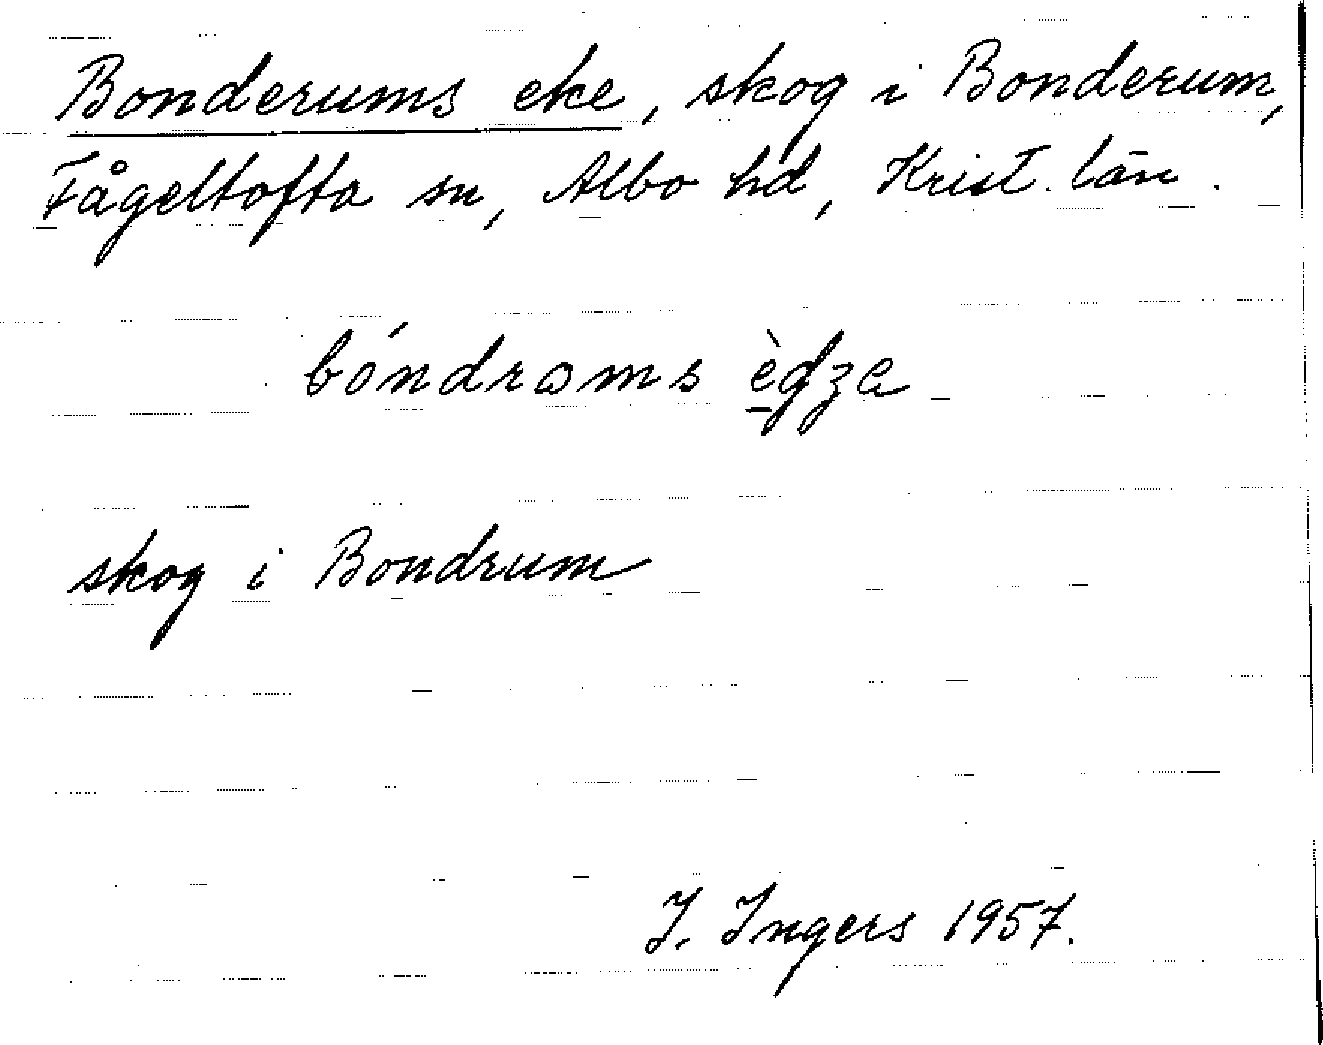 Bonderums eke, skog i Bonderum,
Fågeltofta sn, Albo hd, Krist. län.
bóndrɷms èǥʒa
skog i Bondrum
I. Ingers 1957.